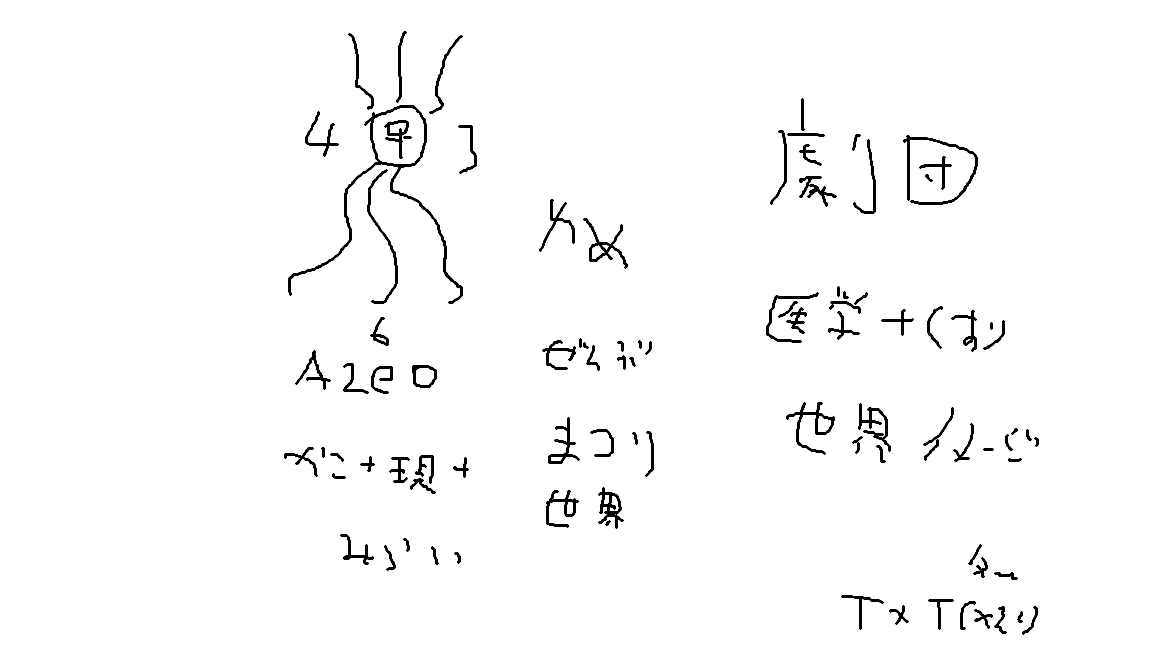 4 早 3
6
A2eO
かこ+現+
みらい
かめ
ぜんぶ
まつり
世界
劇団
医学+くすり
世界イメージ
T×T(×2い)